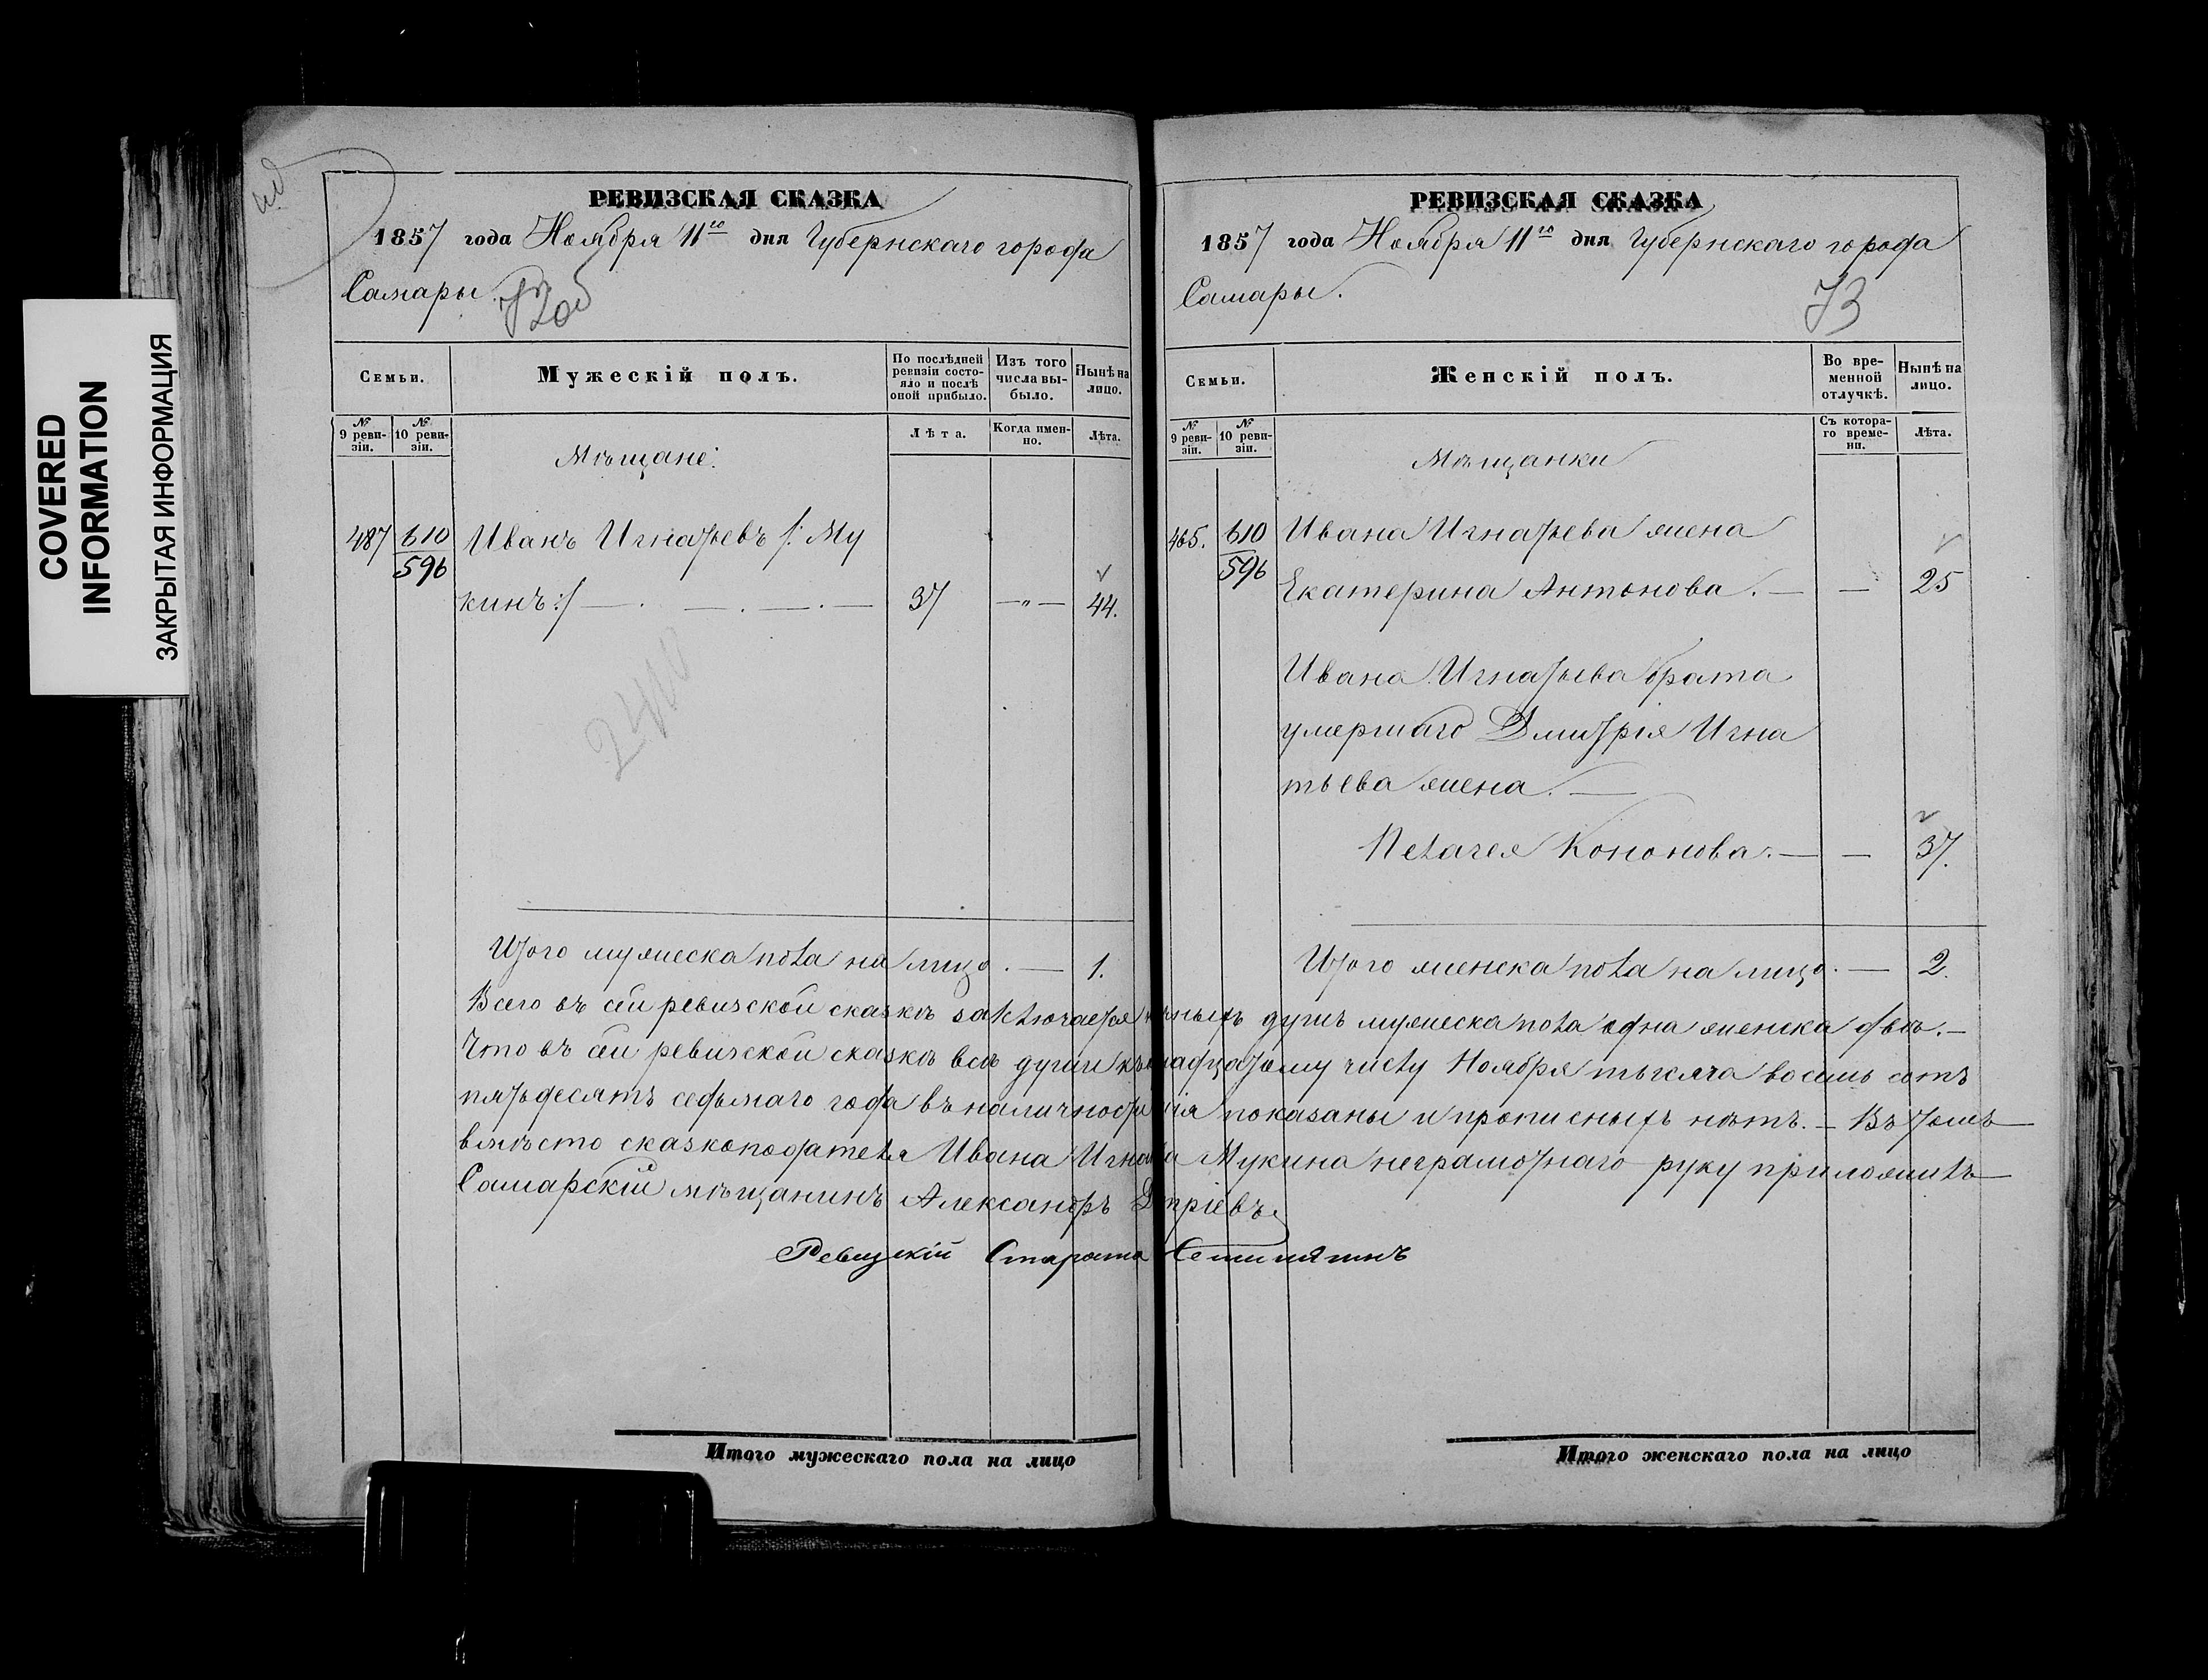 COVERED
INFORMATION
ЗАКРЫТАЯ ИНФОРМАЦИЯ
РЕВИЗСКАЯ СКАЗКА
1857 года Ноября 11го дня Губернскаго города
Самары.
Семьи.
Мужескій полъ.
По послѣдней ревизіи состояло и послѣ оной прибыло.
Изъ того числа выбыло.
Нынѣ на лицо.
№ 9 ревизіи.
№ 10 ревизіи.
Лѣта.
Когда именно.
Лѣта.
Мѣщане:
487 610 Иванъ Игнатьевъ /: Му
596
кинъ :/ — . — . — . — 37 — „ — 44.
2400
Итого мужеска пола на лицо . — 1.
РЕВИЗСКАЯ СКАЗКА
1857 года Ноября 11го дня Губернскаго города
Самары.
73
Семьи.
Женскій полъ.
Во временной отлучкѣ.
Нынѣ на лицо.
№ 9 ревизіи.
№ 10 ревизіи.
Съ котораго времени.
Лѣта.
Мѣщанки
465. 610 Ивана Игнатьева жена
596 Екатерина Антонова . — — 25
Ивана Игнатьева брата
умершаго Дмитрія Игна
тьева жена . —
Пелагея Кононова . — — 37.
Итого женска пола на лицо . — 2.
Всего въ сей ревизской сказкѣ заключается душъ мужеска пола одна женска двѣ . —
Что въ сей ревизской сказкѣ всѣ души къ числу Ноября тысяча восемь сотъ
пятьдесятъ седьмаго года въ наличности показаны и прописныхъ нѣтъ. — Въ томъ
вмѣсто сказкоподателя Ивана Мукина неграмотнаго руку приложилъ
Самарскій мѣщанинъ Александръ
Ревизскій Староста
Итого мужескаго пола на лицо
Итого женскаго пола на лицо